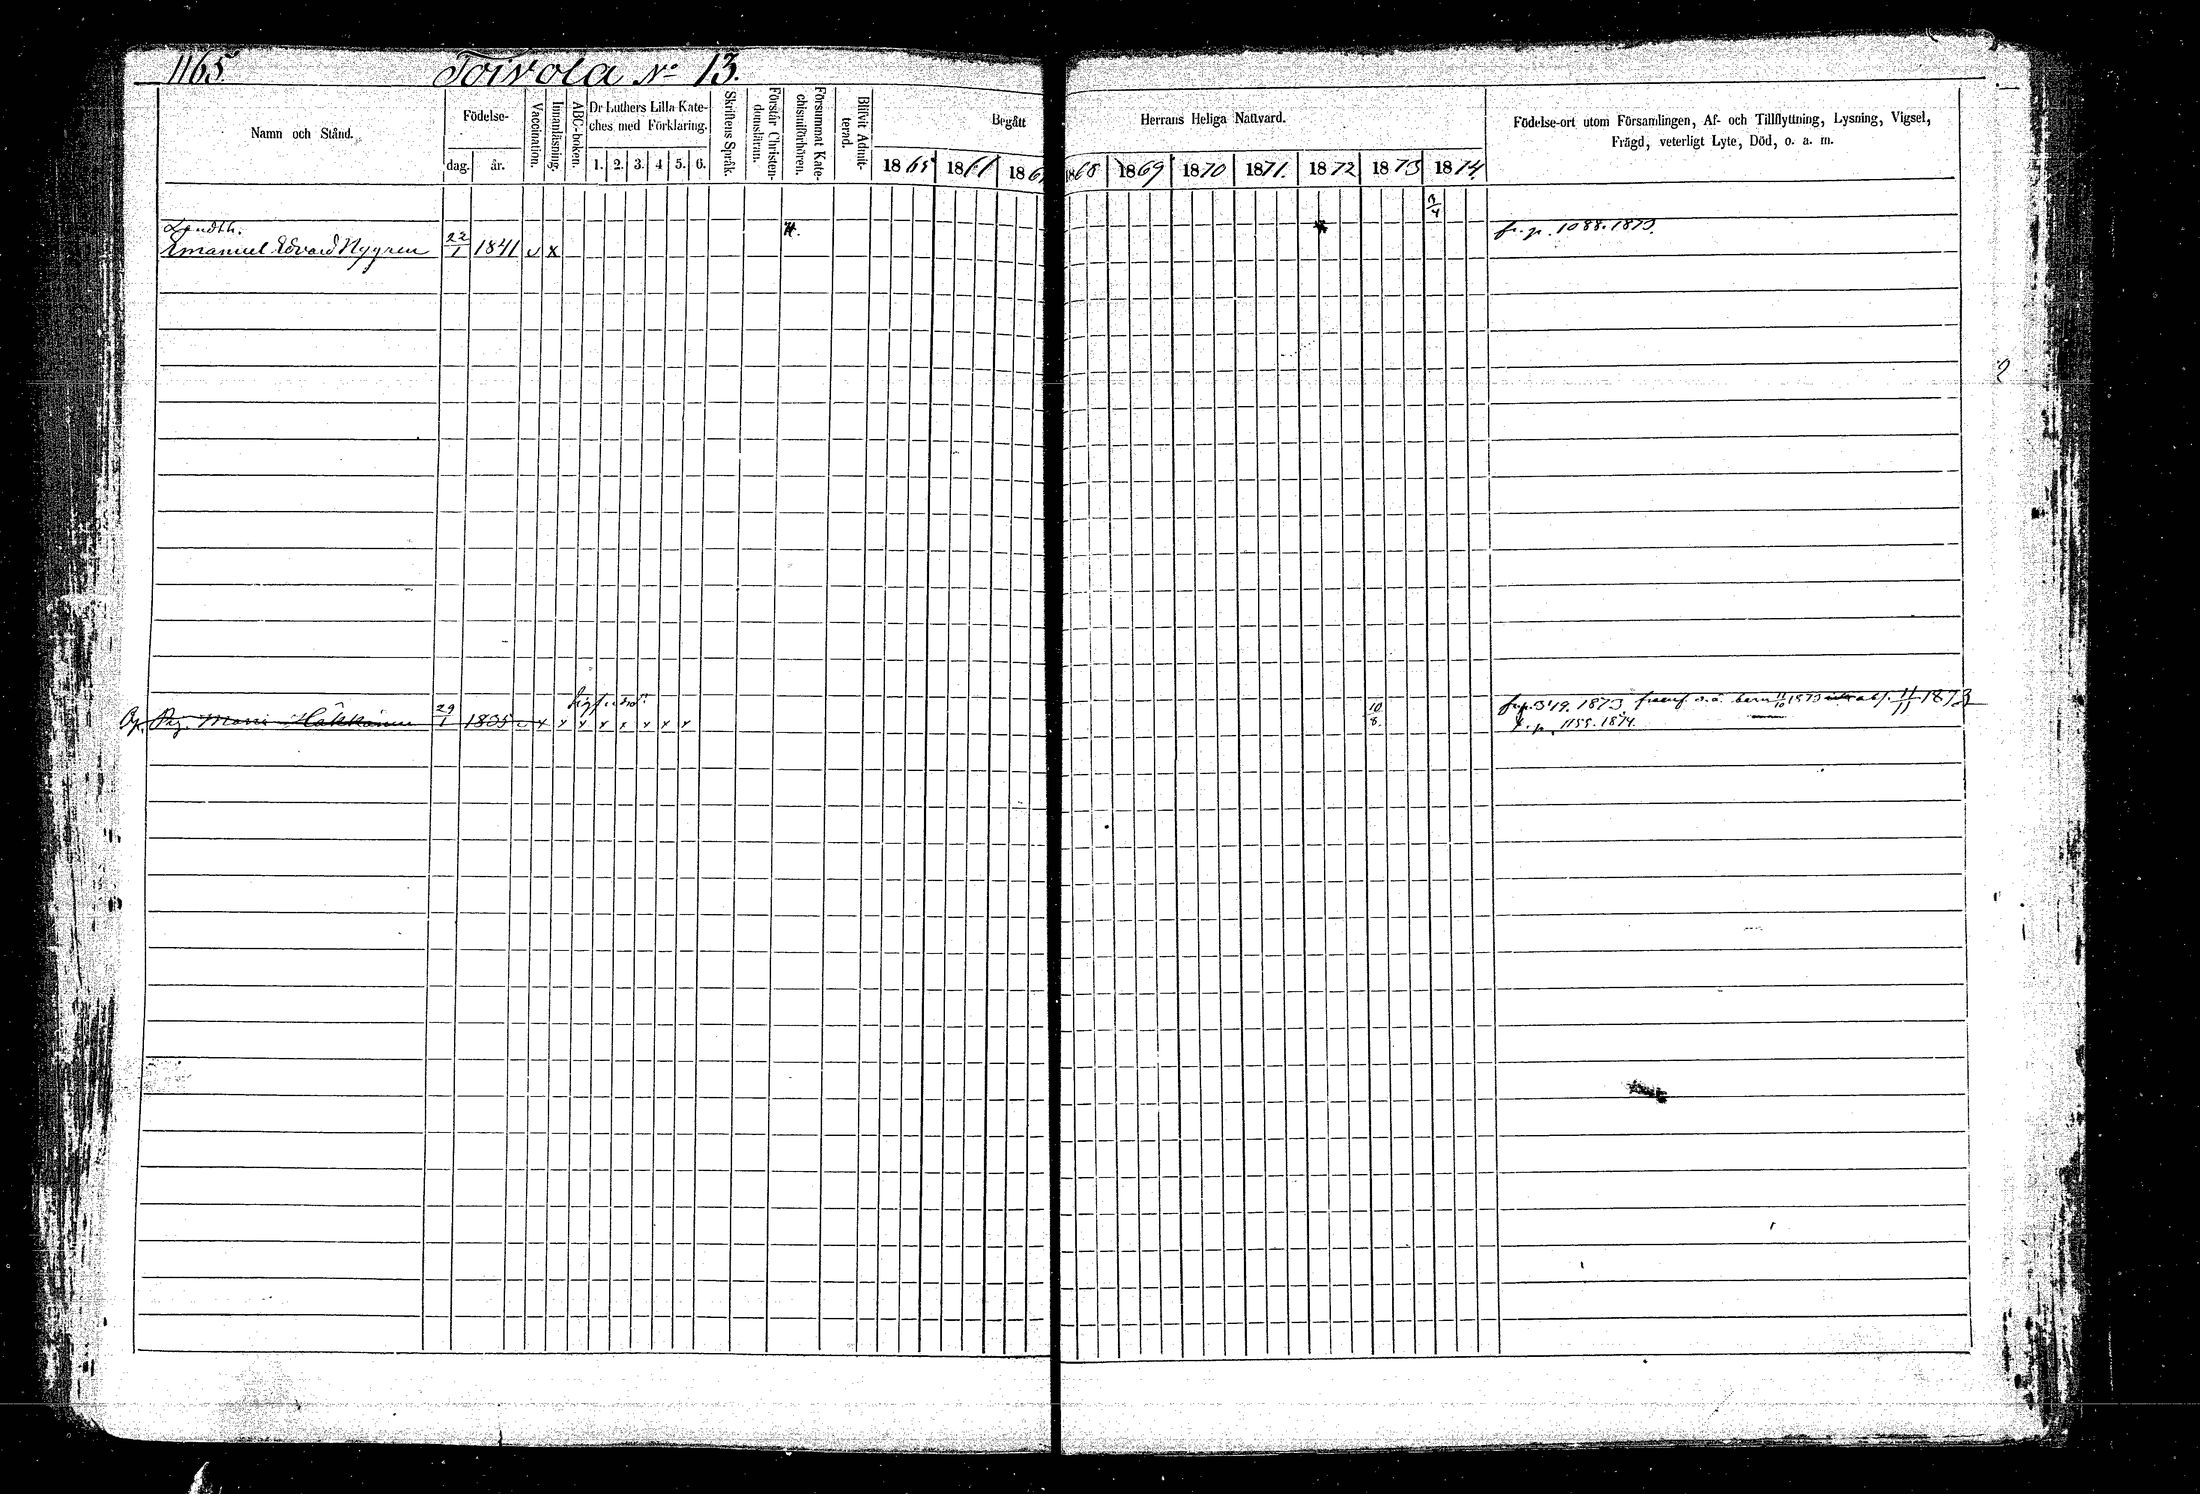 1165.
Toivola No 13.
Namn och Stånd.
Födelse-
dag. år.
Vaccination.
Innanläsning.
ABC-boken.
Dr Luthers Lilla Kate-
ches med Förklaring.
1. 2. 3. 4 5. 6.
Skriftens Språk.
Förstår Christen-
domsläran.
Försummat Kate-
chismiförhören.
Blifvit Admit-
terad.
Begått
1865 1866 186
Herrans Heliga Nattvard.
1868 1869 1870 1871. 1872 1873 1874.
Födelse-ort utom Församlingen, Af- och Tillflyttning, Lysning, Vigsel,
Frägd, veterligt Lyte, Död, o. a. m.
Landth.
Emanuel Edvard Nygren 22/1 1841 v x
fr. p. 1088. 1873.
Pig. Maria Häkkäinen 29/1 1835 v x x x x x x x x
10/8
fr. p. 349. 1873 barn 11/10 1873 11/11 1873
t. p. 1155. 1874.